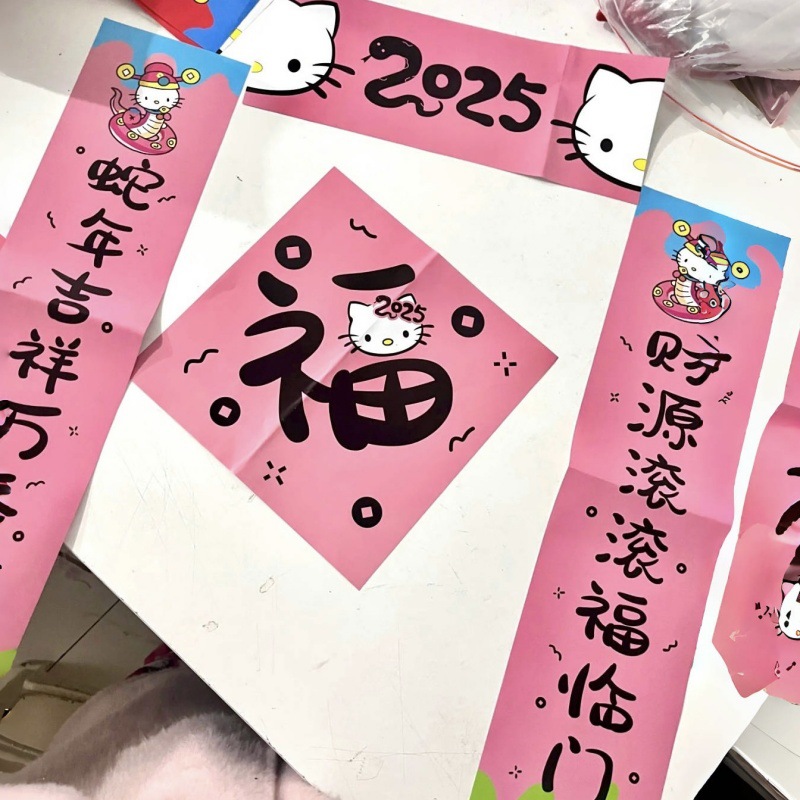 2025
蛇年吉祥万
福
2025
财源滚滚福临门